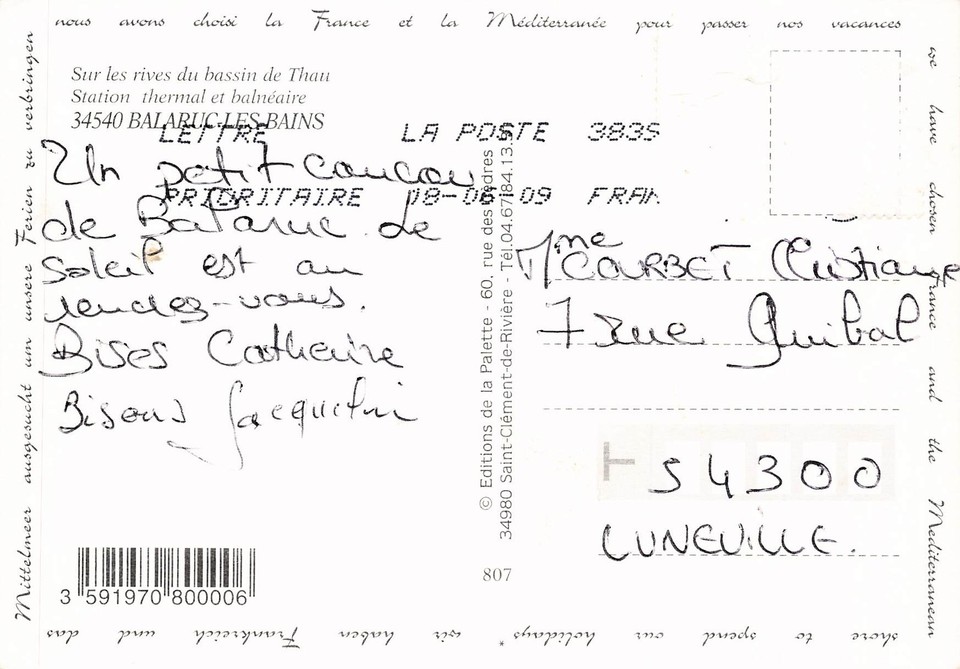 nous avons choisi la France et la Méditerranée pour passer nos vacances
Sur les rives du bassin de Thau
Station thermal et balnéaire
34540 BALARUC-LES-BAINS
LETTRE LA POSTE 3839S
PRIORITAIRE 08-06-09 FRAN
Un petit coucou
de Balaruc. Le
soleil est au
rendez-vous.
Bises Catherine
Bisous Jacqueline
© Editions de la Palette - 60, rue des Cèdres
34980 Saint-Clément-de-Rivière - Tél.04.67.84.13.9
Mme COURBET Christiane
7 rue Guibal
54300
LUNEVILLE.
807
3 591970 800006
we have chosen France and the Mediterranean
shore to spend our holidays * wir haben Frankreich und das
Mittelmeer ausgesucht um unsere Ferien zu verbringen